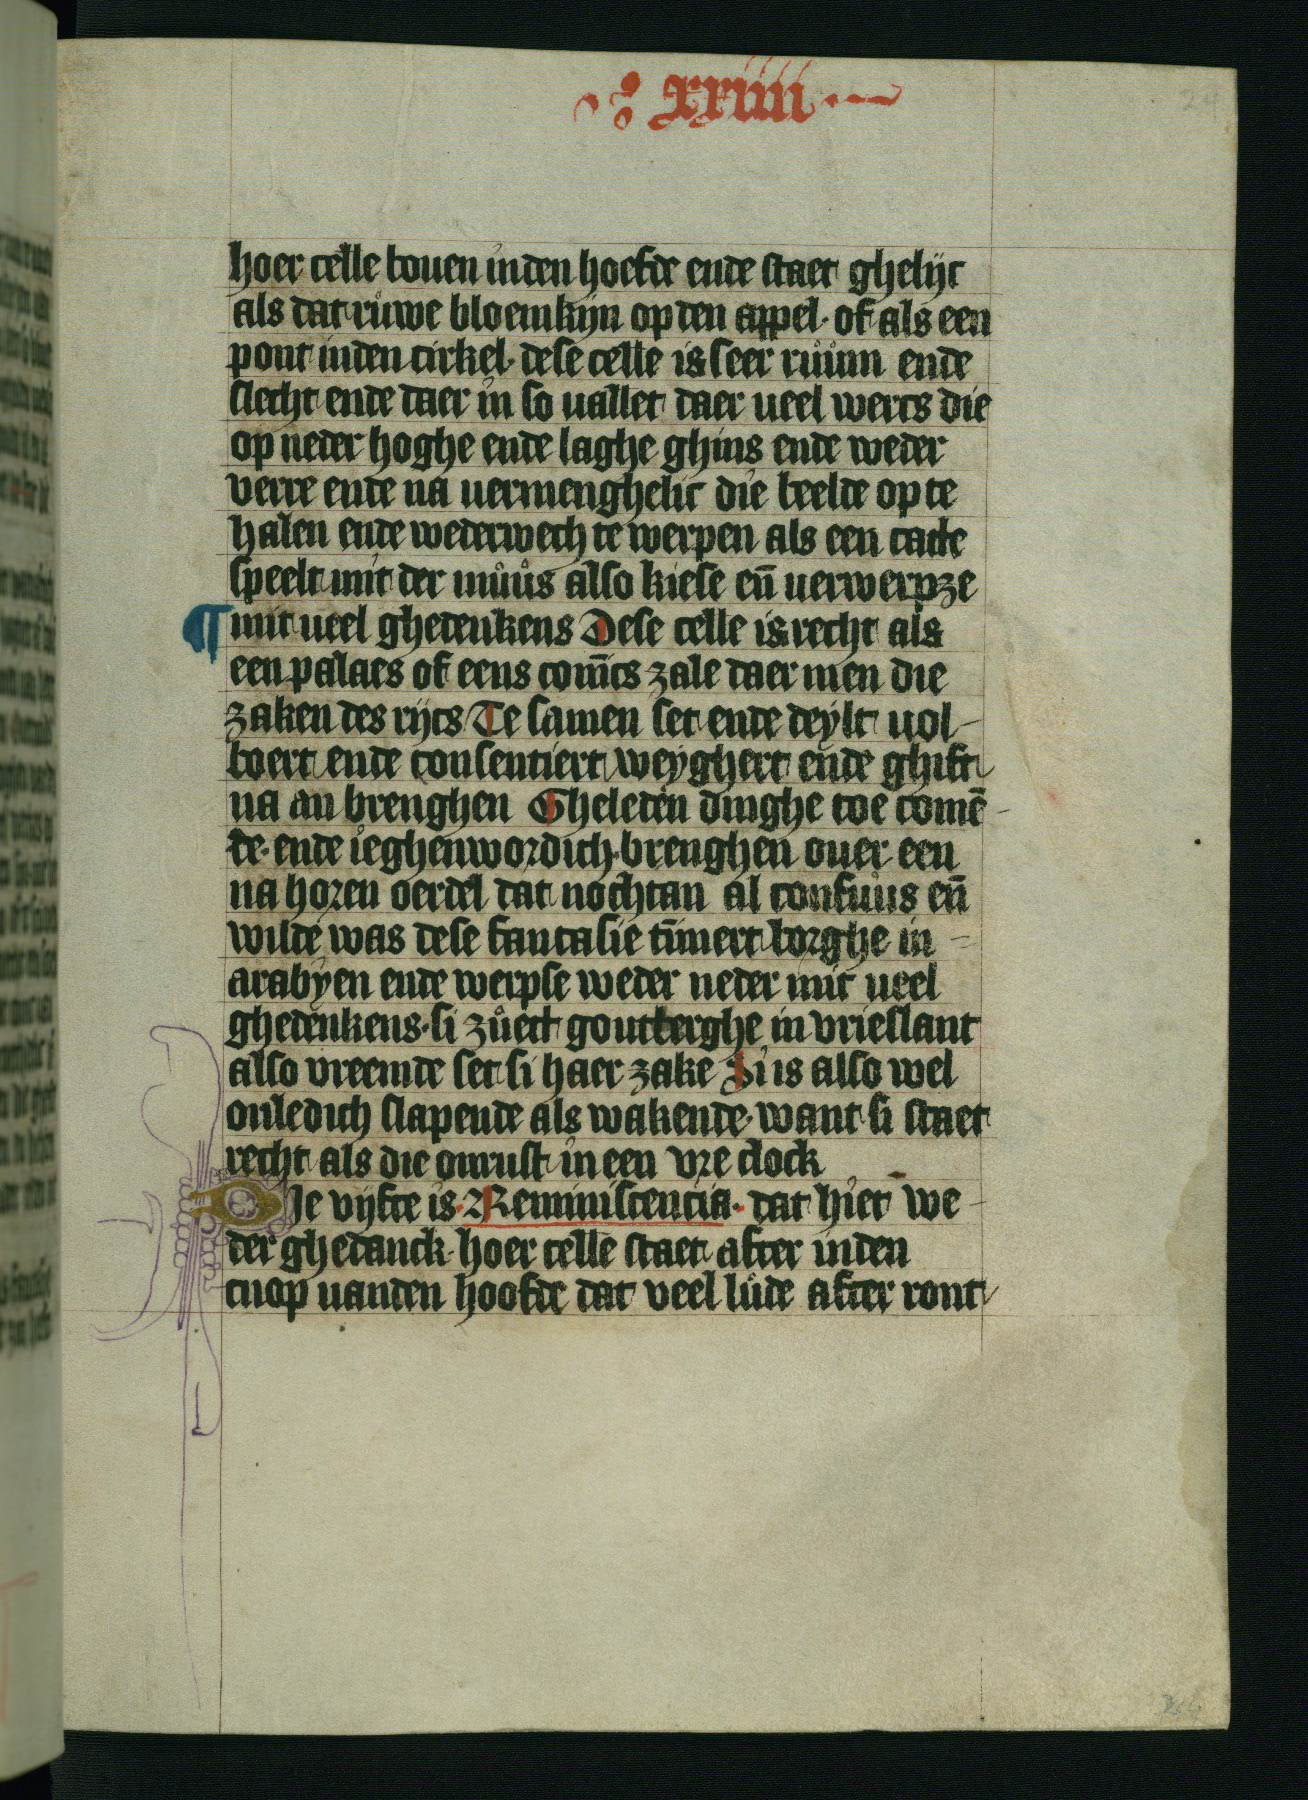 xxiiii
24
hoer celle bouen inden hoefde ende staet ghelijc
als dat ruwe bloemkijn op den appel· of als een
pont inden cirkel· dese celle is seer ruum ende
slecht ende daer in so uallet daer ueel wercs die
op neder hoghe ende laghe ghins ende weder
verre ende na uermenghelic die beelde op te
halen ende wederwech te werpen als een catte
speelt mit der muus also kiese eñ uerwerpze
¶ mit ueel ghedenkens Dese celle is recht als
een palaes of eens comĩcs zale daer men die
zaken des rijcs Te samen set ende deylt uol-
boert ende consentiert weyghert ende ghift
na an brenghen Gheleden dinghe toe comē-
de· ende ieghenwordich· brenghen ouer een
na horen oerdel dat nochtan al confuus eñ
wilde was dese fantasie tim̄ert borghe in
arabyen ende werpse weder neder mit ueel
ghedenkens· si zuect goutberghe in vrieslant
also vreemde set si haer zake Si is also wel
onledich slapende als wakende· want si staet
recht als die onrust in een vre clock
Die vijfte is· Reminiscencia· dat hiet we-
der ghedanck· hoer celle staet after inden
cnop uanden hoofde dat veel lude after ront